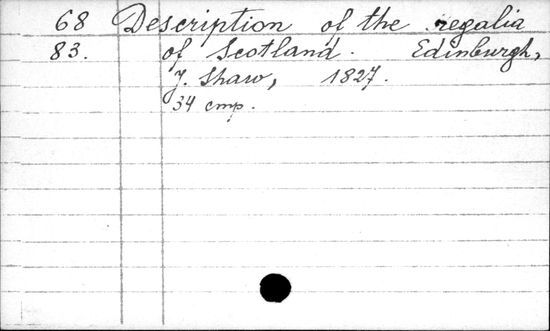 68 Description of the regalia
83. of Scotland. Edinburgh,
J. Shaw, 1827.
34 стр.